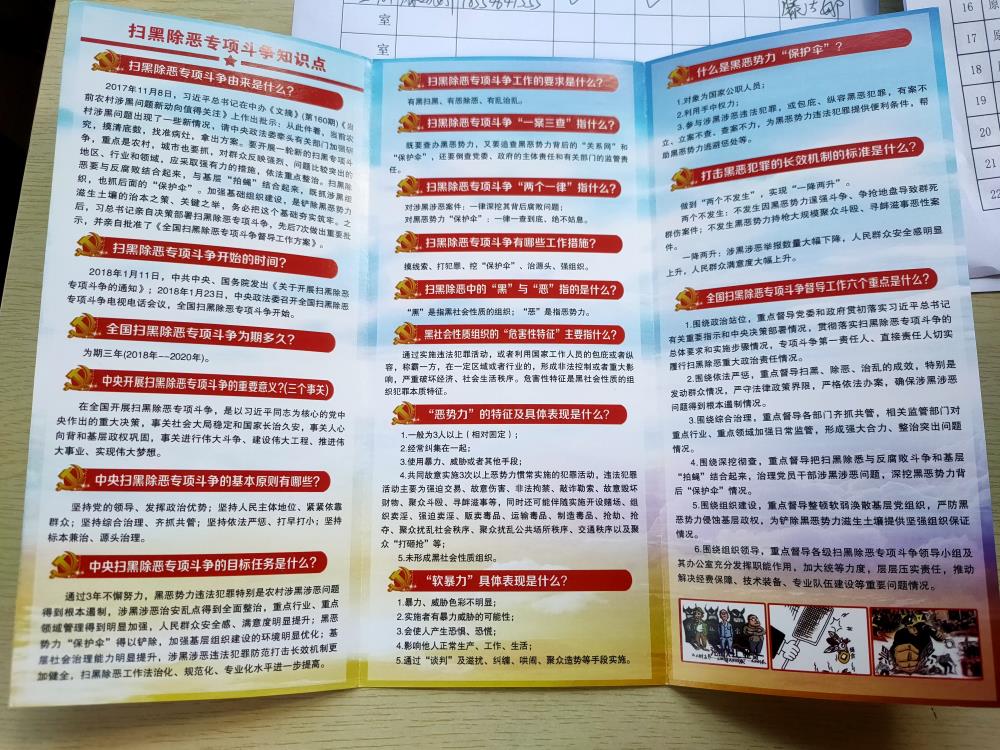 室
室
16
17
18
19
20
21
22
扫黑除恶专项斗争知识点
扫黑除恶专项斗争由来是什么?
2017年11月8日，习近平总书记在中办《文摘》(第160期)《当
前农村涉黑问题新动向值得关注》上作出批示：从此件看，当前农
村涉黑问题出现了一些新情况，请中央政法委牵头有关部门加强研
究，摸清底数，找准病灶，拿出方案。要开展一轮新的扫黑专项斗
争，重点是农村，城市也要抓，对群众反映强烈、问题比较突出的
地区、行业和领域，应采取强有力的措施，依法重点整治。扫黑除
恶要与反腐败结合起来，与基层“拍蝇”结合起来，既抓涉黑组
织，也抓后面的“保护伞”。加强基础组织建设，是铲除黑恶势力
滋生土壤的治本之策、关键之举，务必把这个基础夯实筑牢。之
后，习总书记亲自决策部署扫黑除恶专项斗争，先后7次做出重要批
示，并亲自批准了《全国扫黑除恶专项斗争督导工作方案》。
扫黑除恶专项斗争开始的时间?
2018年1月11日，中共中央、国务院发出《关于开展扫黑除恶
专项斗争的通知》；2018年1月23日，中央政法委召开全国扫黑除恶
专项斗争电视电话会议，全国扫黑除恶专项斗争开始。
全国扫黑除恶专项斗争为期多久?
为期三年(2018年--2020年)。
中央开展扫黑除恶专项斗争的重要意义?(三个事关)
在全国开展扫黑除恶专项斗争，是以习近平同志为核心的党中
央作出的重大决策，事关社会大局稳定和国家长治久安，事关人心
向背和基层政权巩固，事关进行伟大斗争、建设伟大工程、推进伟
大事业、实现伟大梦想。
中央扫黑除恶专项斗争的基本原则有哪些?
坚持党的领导、发挥政治优势；坚持人民主体地位、紧紧依靠
群众；坚持综合治理、齐抓共管；坚持依法严惩、打早打小；坚持
标本兼治、源头治理。
中央扫黑除恶专项斗争的目标任务是什么?
通过3年不懈努力，黑恶势力违法犯罪特别是农村涉黑涉恶问题
得到根本遏制，涉黑涉恶治安乱点得到全面整治，重点行业、重点
领域管理得到明显加强，人民群众安全感、满意度明显提升；黑恶
势力“保护伞”得以铲除，加强基层组织建设的环境明显优化；基
层社会治理能力明显提升，涉黑涉恶违法犯罪防范打击长效机制更
加健全，扫黑除恶工作法治化、规范化、专业化水平进一步提高。
扫黑除恶专项斗争工作的要求是什么?
有黑扫黑、有恶除恶、有乱治乱。
扫黑除恶专项斗争“一案三查”指什么?
既要查办黑恶势力，又要追查黑恶势力背后的“关系网”和
“保护伞”，还要倒查党委、政府的主体责任和有关部门的监管责
任。
扫黑除恶专项斗争“两个一律”指什么?
对涉黑涉恶案件：一律深挖其背后腐败问题；
对黑恶势力“保护伞”：一律一查到底、绝不姑息。
扫黑除恶专项斗争有哪些工作措施?
摸线索、打犯罪、挖“保护伞”、治源头、强组织。
扫黑除恶中的“黑”与“恶”指的是什么?
“黑”是指黑社会性质的组织；“恶”是指恶势力。
黑社会性质组织的“危害性特征”主要指什么?
通过实施违法犯罪活动，或者利用国家工作人员的包庇或者纵
容，称霸一方，在一定区域或者行业内，形成非法控制或者重大影
响，严重破坏经济、社会生活秩序。危害性特征是黑社会性质的组
织犯罪本质特征。
“恶势力”的特征及具体表现是什么?
1.一般为3人以上（相对固定）；
2.经常纠集在一起；
3.使用暴力、威胁或者其他手段；
4.共同故意实施3次以上恶势力惯常实施的犯罪活动，违法犯罪
活动主要为强迫交易、故意伤害、非法拘禁、敲诈勒索、故意毁坏
财物、聚众斗殴、寻衅滋事等，同时还可能伴随实施开设赌场、组
织卖淫、强迫卖淫、贩卖毒品、运输毒品、制造毒品、抢劫、抢
夺、聚众扰乱社会秩序、聚众扰乱公共场所秩序、交通秩序以及聚
众“打砸抢”等；
5.未形成黑社会性质组织。
“软暴力”具体表现是什么?
1.暴力、威胁色彩不明显；
2.实施者有暴力威胁的可能性；
3.会使人产生恐惧、恐慌；
4.影响他人正常生产、工作、生活；
5.通过“谈判”及滋扰、纠缠、哄闹、聚众造势等手段实施。
什么是黑恶势力“保护伞”?
1.对象为国家公职人员；
2.利用手中权力；
3.参与涉黑涉恶违法犯罪，或包庇、纵容黑恶犯罪，有案不
立、立案不查、查案不力，为黑恶势力违法犯罪提供便利条件，帮
助黑恶势力逃避惩处等。
打击黑恶犯罪的长效机制的标准是什么?
做到“两个不发生”，实现“一降两升”。
两个不发生：不发生因黑恶势力逞强斗争、争抢地盘导致群死
群伤案件；不发生黑恶势力持枪大规模聚众斗殴、寻衅滋事恶性案
件。
一降两升：涉黑涉恶举报数量大幅下降，人民群众安全感明显
上升，人民群众满意度大幅上升。
全国扫黑除恶专项斗争督导工作六个重点是什么?
1.围绕政治站位，重点督导党委和政府贯彻落实习近平总书记
有关重要指示和中央决策部署情况，贯彻落实扫黑除恶专项斗争的
总体要求和实施步骤情况，专项斗争第一责任人、直接责任人切实
履行扫黑除恶重大政治责任情况。
2.围绕依法严惩，重点督导扫黑、除恶、治乱的成效，特别是
发动群众情况，严守法律政策界限，严格依法办案，确保涉黑涉恶
问题得到根本遏制情况。
3.围绕综合治理，重点督导各部门齐抓共管，相关监管部门对
重点行业、重点领域加强日常监管，形成强大合力、整治突出问题
情况。
4.围绕深挖彻查，重点督导把扫黑除恶与反腐败斗争和基层
“拍蝇”结合起来，治理党员干部涉黑涉恶问题，深挖黑恶势力背
后“保护伞”情况。
5.围绕组织建设，重点督导整顿软弱涣散基层党组织，严防黑
恶势力侵蚀基层政权，为铲除黑恶势力滋生土壤提供坚强组织保证
情况。
6.围绕组织领导，重点督导各级扫黑除恶专项斗争领导小组及
其办公室充分发挥职能作用，加大统筹力度，层层压实责任，推动
解决经费保障、技术装备、专业队伍建设等重要问题情况。